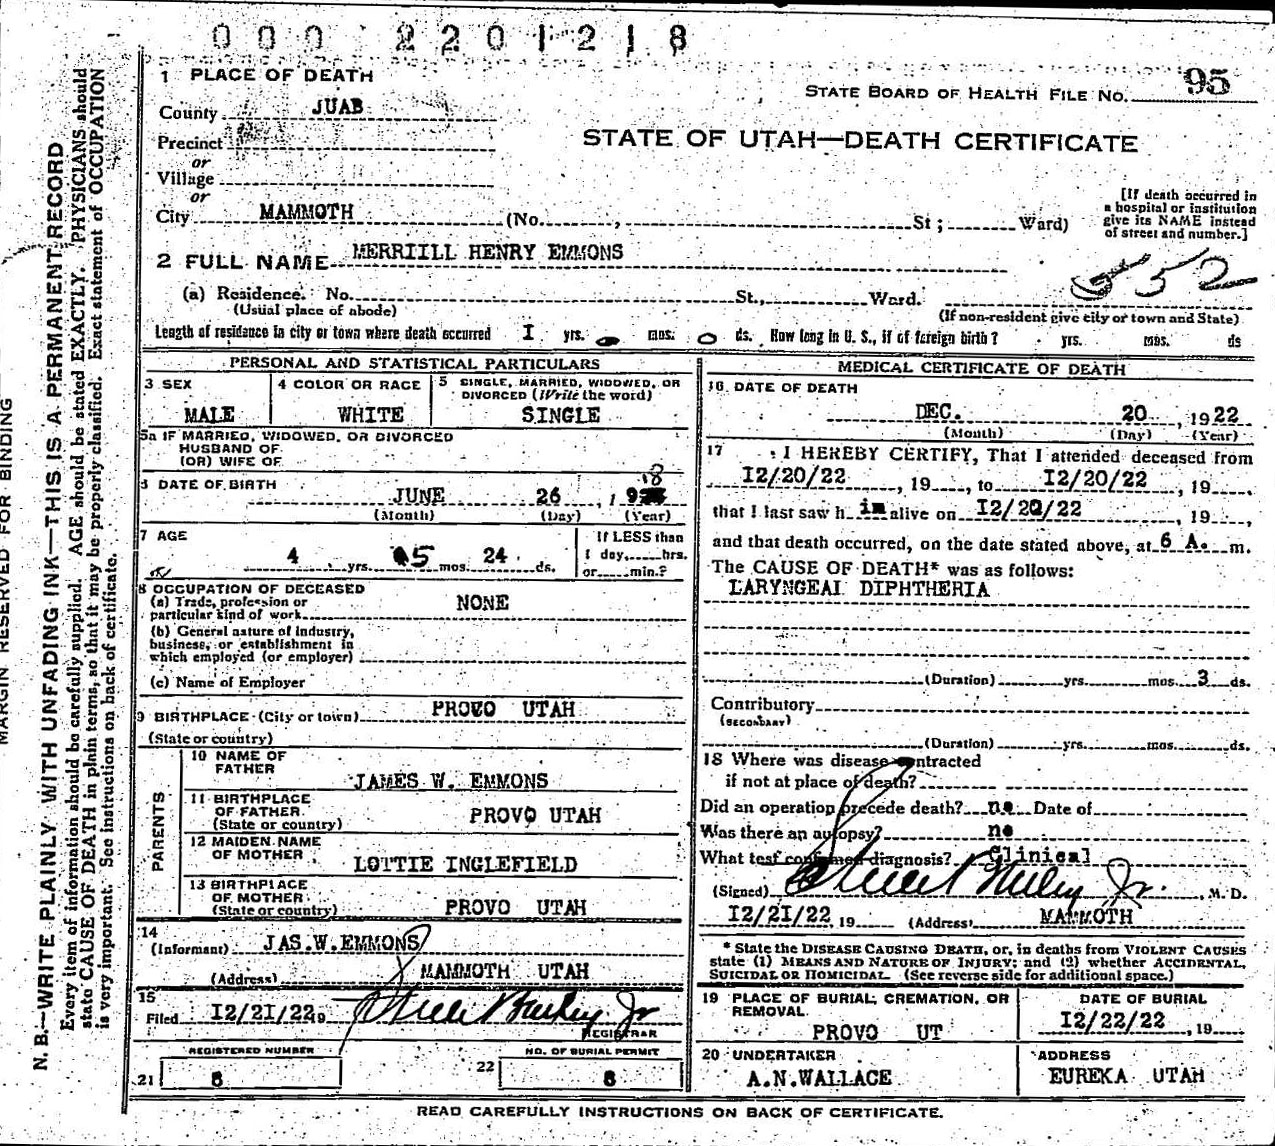 000 2201218
1 PLACE OF DEATH
STATE BOARD OF HEALTH FILE NO. 95
County JUAB
STATE OF UTAH—DEATH CERTIFICATE
Precinct
or
Village
or
City MAMMOTH (No. , St ; Ward)
[If death occurred in
a hospital or institution
give its NAME instead
of street and number.]
2 FULL NAME MERRIILL HENRY EMMONS
552
(a) Residence. No. St., Ward.
(Usual place of abode)
(If non-resident give city or town and State)
Length of residence in city or town where death occurred I yrs. mos. 0 ds. How long in U. S., if of foreign birth? yrs. mos. ds
PERSONAL AND STATISTICAL PARTICULARS
3 SEX
MALE
4 COLOR OR RACE
WHITE
5 SINGLE, MARRIED, WIDOWED, OR
DIVORCED (Write the word)
SINGLE
5a IF MARRIED, WIDOWED, OR DIVORCED
HUSBAND OF
(OR) WIFE OF
6 DATE OF BIRTH
JUNE 26 , 19 8
(Month) (Day) (Year)
7 AGE
4 yrs. 5 mos. 24 ds.
If LESS than
1 day, hrs.
or min.?
8 OCCUPATION OF DECEASED
(a) Trade, profession or
particular kind of work NONE
(b) General nature of industry,
business, or establishment in
which employed (or employer)
(c) Name of Employer
9 BIRTHPLACE (City or town) PROVO UTAH
(State or country)
PARENTS
10 NAME OF
FATHER
JAMES W. EMMONS
11 BIRTHPLACE
OF FATHER
(State or country) PROVO UTAH
12 MAIDEN NAME
OF MOTHER LOTTIE INGLEFIELD
13 BIRTHPLACE
OF MOTHER
(State or country) PROVO UTAH
14
(Informant) JAS.W.EMMONS
(Address) MAMMOTH UTAH
15
Filed I2/2I/22 9
REGISTRAR
REGISTERED NUMBER
21 8
NO. OF BURIAL PERMIT
22 8
MEDICAL CERTIFICATE OF DEATH
16 DATE OF DEATH
DEC. 20 , 1922
(Month) (Day) (Year)
17 I HEREBY CERTIFY, That I attended deceased from
I2/20/22 , 19 , to I2/20/22 , 19 ,
that I last saw h im alive on I2/20/22 , 19 ,
and that death occurred, on the date stated above, at 6 A. m.
The CAUSE OF DEATH* was as follows:
LARYNGEAI DIPHTHERIA
(Duration) yrs. mos. 3 ds.
Contributory
(SECONDARY)
(Duration) yrs. mos. ds.
18 Where was disease contracted
if not at place of death?
Did an operation precede death? no Date of
Was there an autopsy? no
What test confirmed diagnosis? Clinical
(Signed) Jr. , M. D.
I2/2I/22, 19 (Address) MAMMOTH
* State the DISEASE CAUSING DEATH, or, in deaths from VIOLENT CAUSES
state (1) MEANS AND NATURE OF INJURY; and (2) whether ACCIDENTAL,
SUICIDAL OR HOMICIDAL. (See reverse side for additional space.)
19 PLACE OF BURIAL, CREMATION, OR
REMOVAL
PROVO UT
DATE OF BURIAL
I2/22/22 , 19
20 UNDERTAKER
A.N.WALLACE
ADDRESS
EUREKA UTAH
READ CAREFULLY INSTRUCTIONS ON BACK OF CERTIFICATE.
MARGIN RESERVED FOR BINDING
N. B.—WRITE PLAINLY WITH UNFADING INK—THIS IS A PERMANENT RECORD
Every item of information should be carefully supplied. AGE should be stated EXACTLY. PHYSICIANS should
state CAUSE OF DEATH in plain terms, so that it may be properly classified. Exact statement of OCCUPATION
is very important. See instructions on back of certificate.